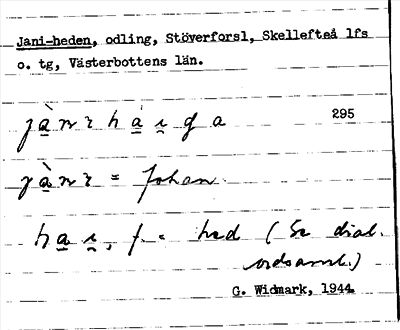 Jani-heden, odling, Stöverforsl, Skellefteå lfs
o. tg, Västerbottens län.
295
= Johan
f. = hed (Se dial.
ordsaml.)
G. Widmark, 1944.